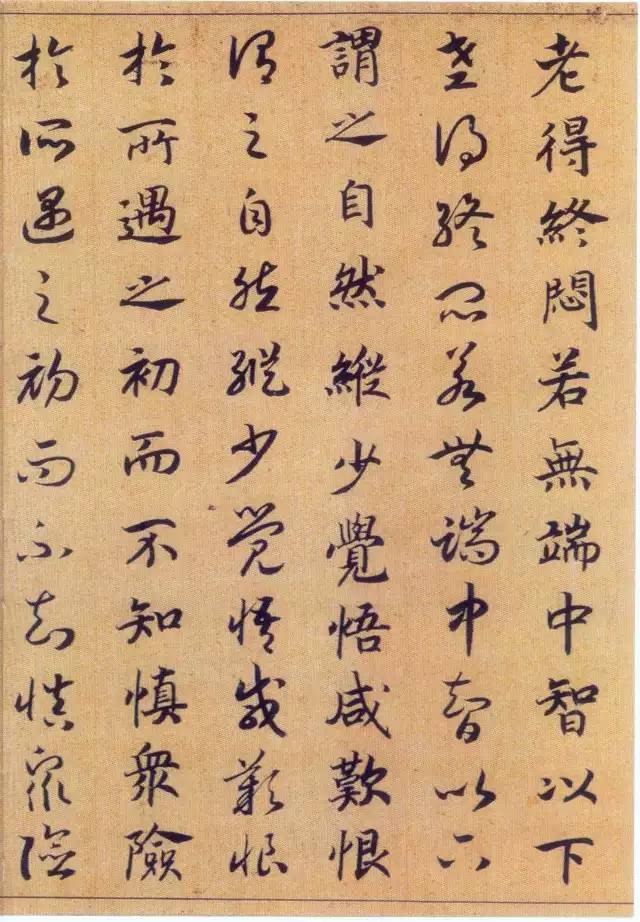 老得終悶若無端中智以下
老得終悶若無端中智以下
謂之自然縱少覺悟咸歎恨
謂之自然縱少覺悟咸歎恨
於所遇之初而不知慎眾險
於所遇之初而不知慎眾險